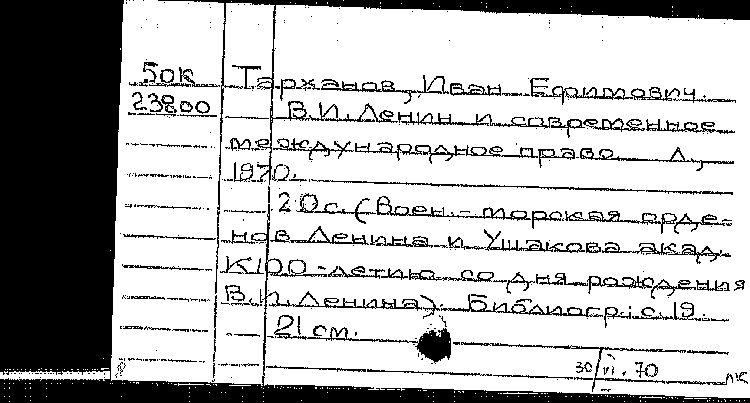 50к Тарханов, Иван Ефимович.
23800 В.И.Ленин и современное
международное право. Л.,
1970.
20с. (Воен.-морская орде-
нов Ленина и Ушакова акад.
К 100-летию со дня рождения
В.И.Ленина). Библиогр.: с. 19.
21 см.
30/VI.70